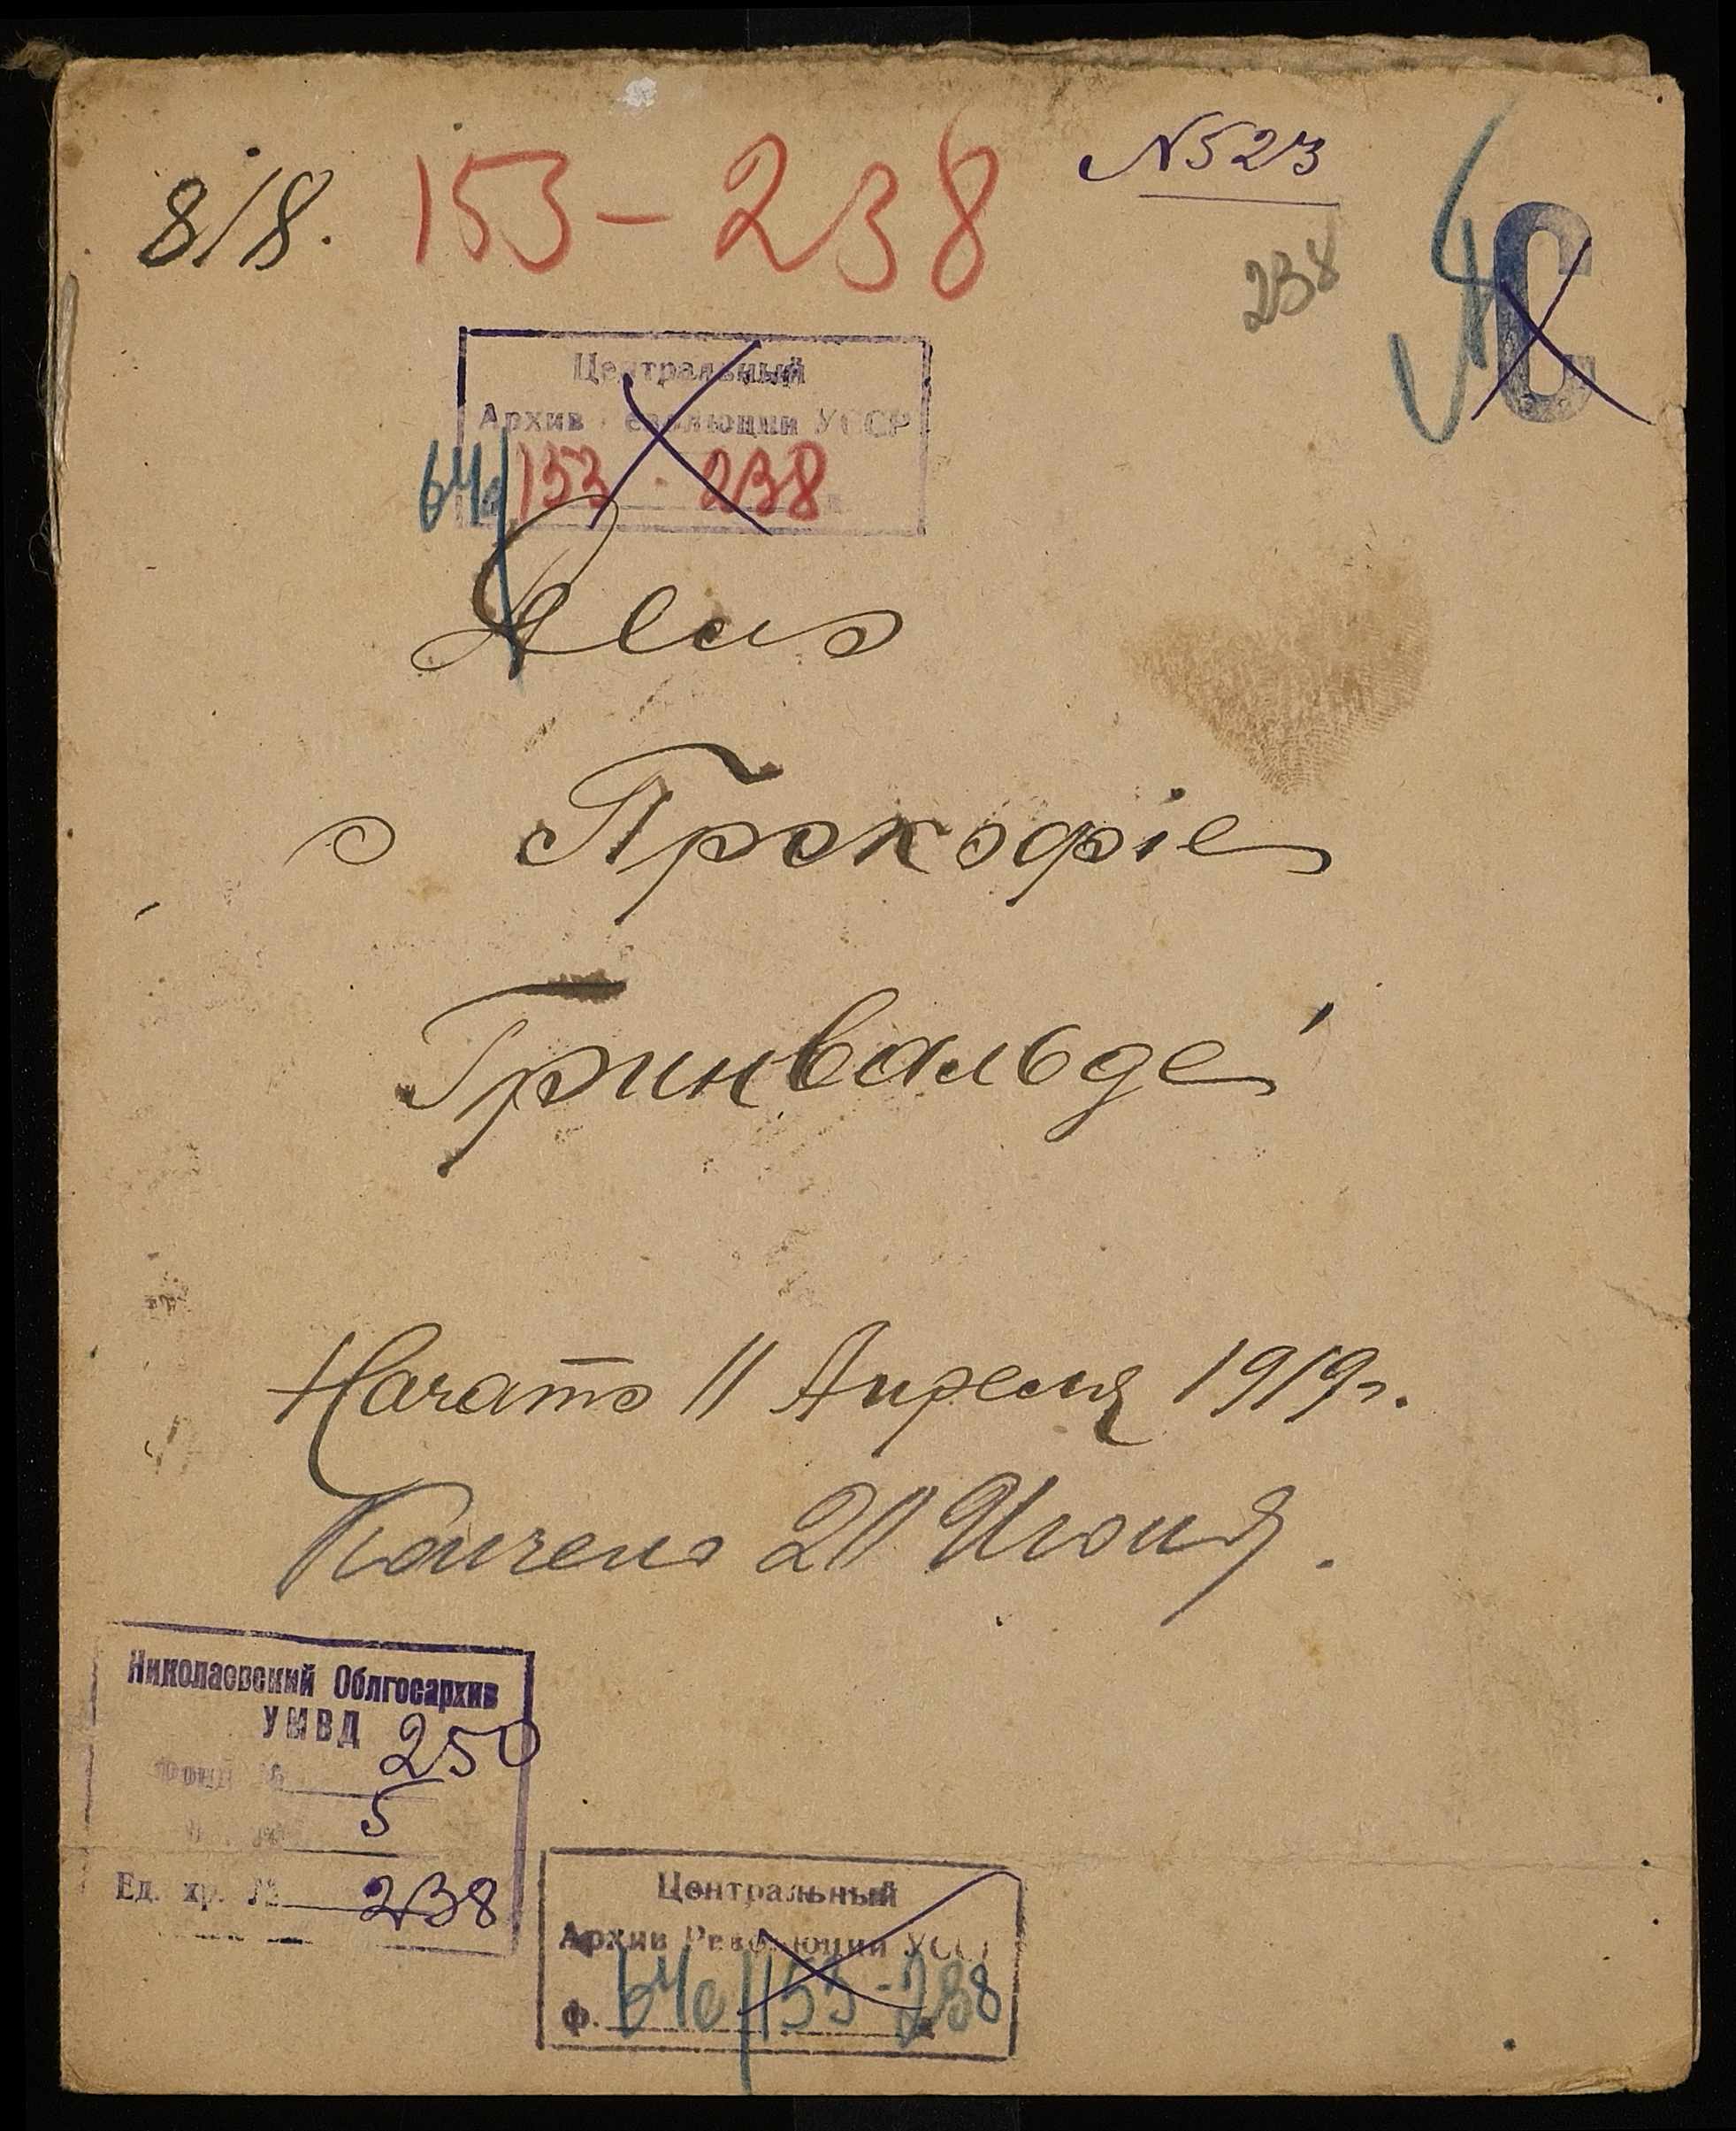 8/8. 153-238 N523
238
С
Центральный
Архив Революции УССР
153 · 238
Дело
о Прокофіе
Гринвальде
Начато 11 Апреля 1919 г.
Кончено 20 Июня.
Николаевский Облгосархив
УМВД
Фонд № 250
5
Ед. хр. № 238
Центральный
Архив Революции УССР
ф. 153-238